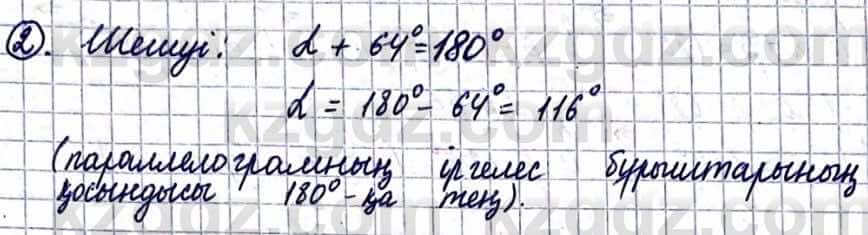 ②. Шешуі: α + 64° = 180°
α = 180° - 64° = 116°
(параллелограмның іргелес бұрыштарының
қосындысы 180° -қа тең).